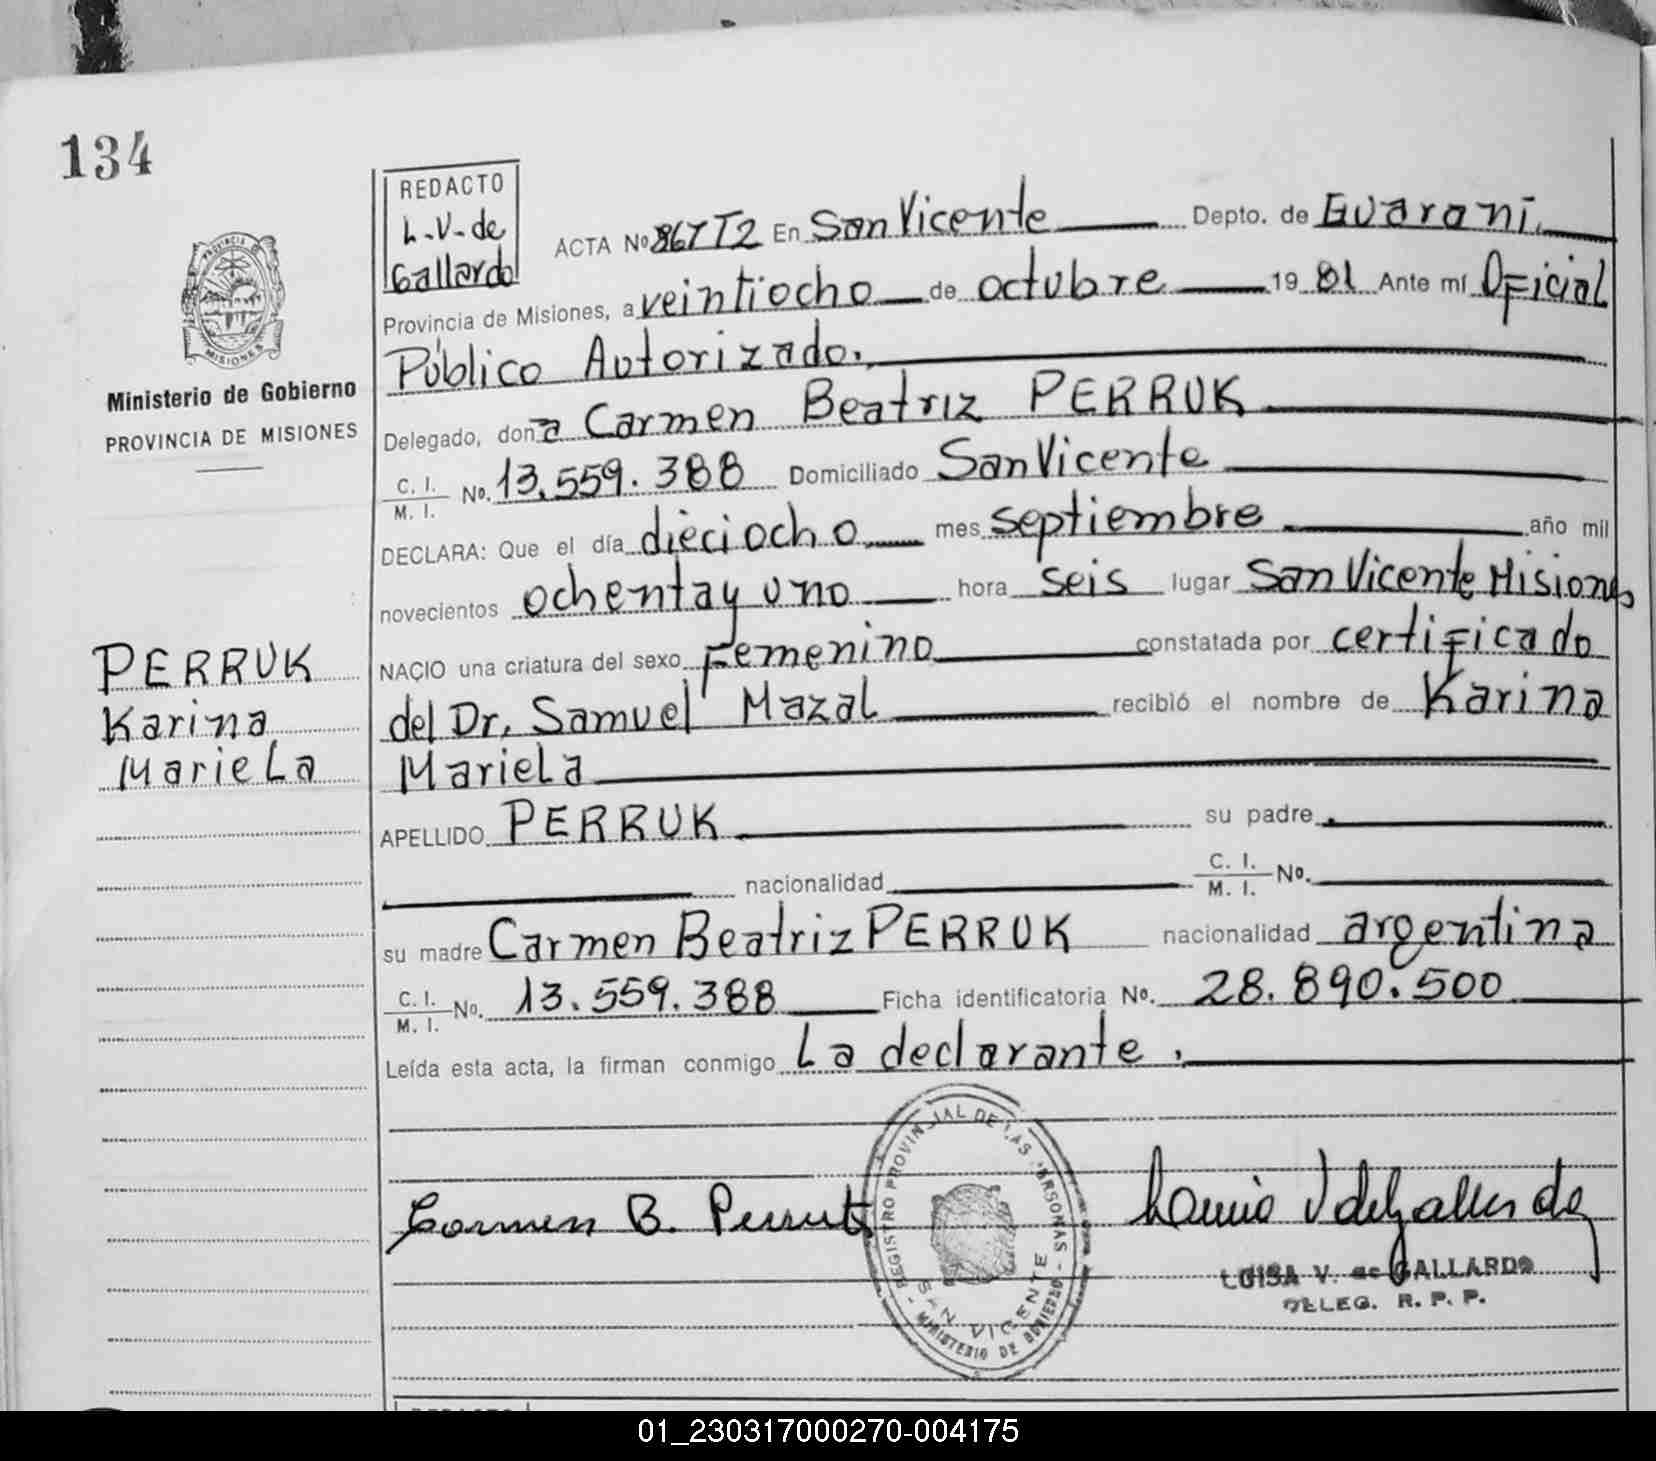 134
REDACTO
L.V. de
Gallardo
ACTA Nº 867 T2 En San Vicente Depto. de Guaraní.
Provincia de Misiones, a veintiocho de octubre 19 81 Ante mí Oficial
Público Autorizado.
Delegado, don a Carmen Beatriz PERRUK
C. I. / M. I. Nº. 13.559.388 Domiciliado San Vicente
DECLARA: Que el día dieciocho mes septiembre año mil
novecientos ochenta y uno hora seis lugar San Vicente Misiones
NACIO una criatura del sexo Femenino constatada por certificado
del Dr. Samuel Mazal recibió el nombre de Karina
Mariela
APELLIDO PERRUK su padre
nacionalidad C. I. / M. I. Nº.
su madre Carmen Beatriz PERRUK nacionalidad argentina
C. I. / M. I. Nº. 13.559.388 Ficha identificatoria Nº. 28.890.500
Leída esta acta, la firman conmigo La declarante.
PROVINCIA DE
MISIONES
Ministerio de Gobierno
PROVINCIA DE MISIONES
PERRUK
Karina
Mariela
Carmen B. Perruk
REGISTRO PROVINCIAL DE LAS PERSONAS
SAN VICENTE
MINISTERIO DE GOBIERNO
LUISA V. de GALLARDO
DELEG. R. P. P.
REDACTO
01_230317000270-004175